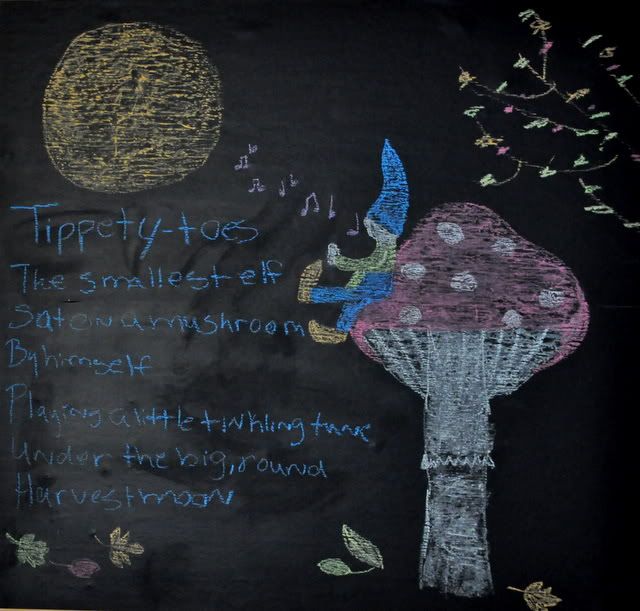 Tippety-toes
The smallest elf
Sat on a mushroom
By himself
Playing a little tinkling tune
Under the big, round
Harvest moon